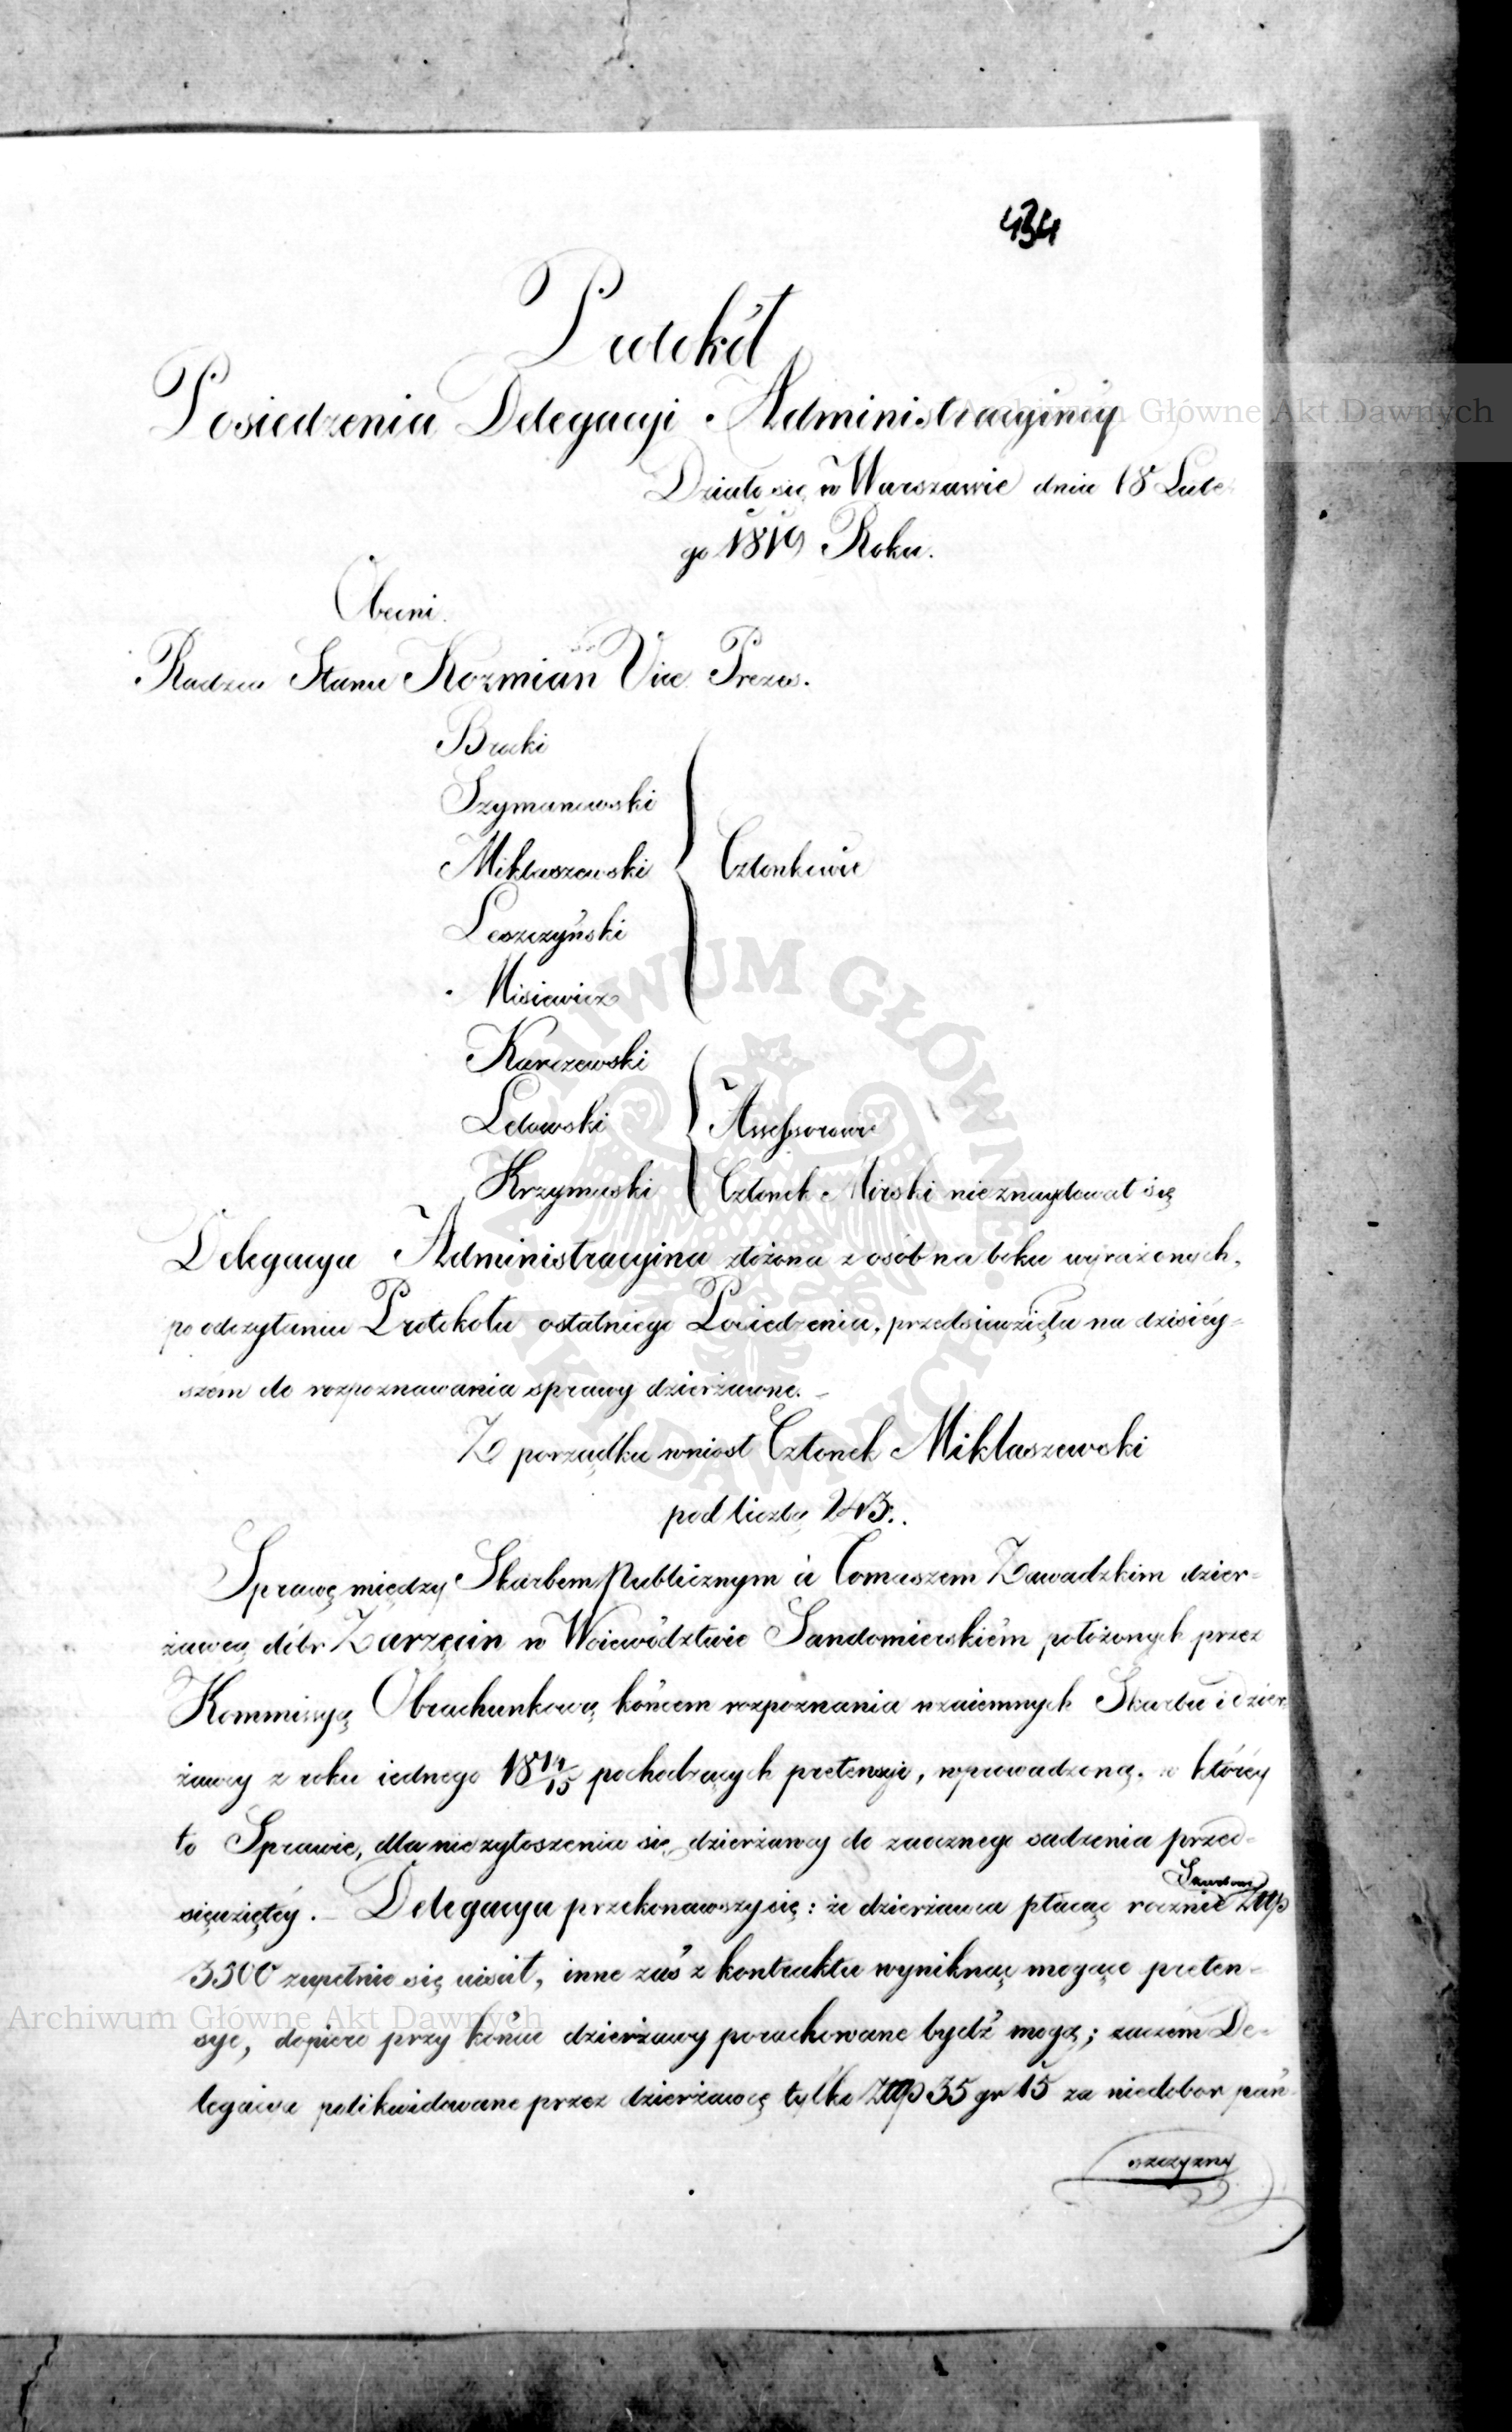 434
Protokół
Posiedzenia Delegacyi Administracyiney
Działo się w Warszawie dnia 18 Lute
go 1819 Roku.
Obecni.
Radzca Stanu Kozmian Vice Prezes.
Bracki
Szymanowski
Miklaszewski Członkowie
Leszczyński
Misiewicz
Karczewski
Ledowski Assessorowie
Krzymuski Członek Mirski nieznaydował się
Delegacya Administracyina złożona z osób na boku wyrażonych,
po odczytaniu Protokołu ostatniego Posiedzenia, przedsiewzięła na dzisiéy-
szém do rozpoznawania sprawy dzierżawne. –
Z porządku wniosł Członek Miklaszewski
pod liczbą 243.
Sprawę między Skarbem Publicznym a Tomaszem Zawadzkim dzier-
żawcą dóbr Zarzęcin w Woiewództwie Sandomierskiém położonych przez
Kommissyą Obrachunkową końcem rozpoznania wzaiemnych Skarbu i dzier-
żawcy z roku iednego 18 14/15 pochodzących pretensyi, wprowadzoną. w któréy
to Sprawie, dla niezgłoszenia się dzierżawcy do zaocznego sądzenia przed-
sięwziętéy. – Delegacya przekonawszy się: że dzierżawca płacąc rocznie Skarbowi Złtp
3300 zupełnie się uiścił, inne zaś z kontraktu wyniknąć mogące preten-
sye, dopiero przy końcu dzierżawy porachowane bydź mogą; zaczém De-
legacya polikwidowane przez dzierżawcę tylko Złtp 35 gr 15 za niedobor pań-
szczyzny
Archiwum Główne Akt Dawnych
Archiwum Główne Akt Dawnych
ARCHIWUM GŁÓWNE AKT DAWNYCH